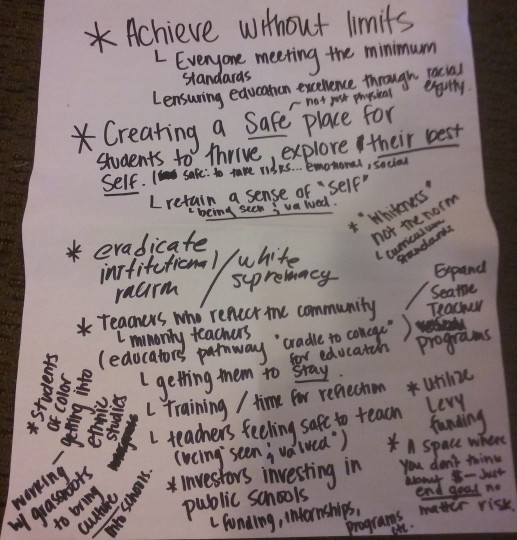 * Achieve without limits
└ Everyone meeting the minimum
standards
└ ensuring education excellence through racial
equity.
not just physical
* Creating a Safe place for
students to thrive, explore & their best
self. ( safe: to take risks... emotional, social
└ retain a sense of "self"
└ being seen & valued.
* "Whiteness"
not the norm
└ curriculum
standards
* eradicate
institutional / white
racism / supremacy
* Teachers who reflect the community
└ minority teachers
(educators pathway "cradle to college"
for educator )
/ Expand
Seattle
Teacher
programs
└ getting them to stay.
└ Training / time for reflection
└ teachers feeling safe to teach
(being seen & valued")
* Investors investing in
public schools
└ funding, internships,
programs
etc.
* Utilize
Levy
funding
* A space where
you don't think
about $ - just
end goal no
matter risk.
* Students
of color
- getting into
ethnic
studies
working
w/ grassroots
to bring
culture
into schools.